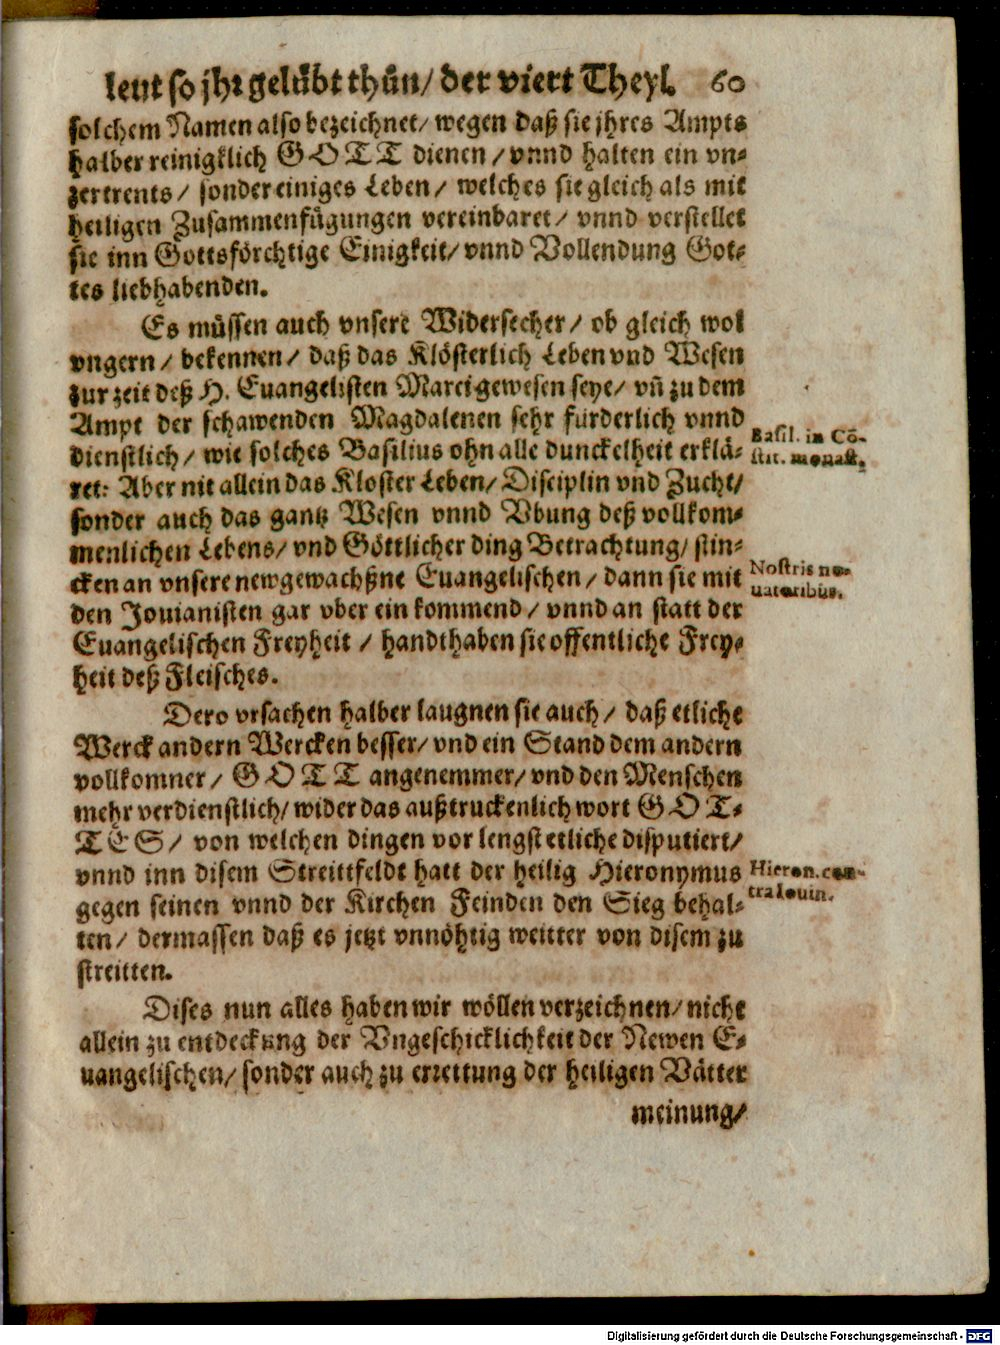 leut so jhr gelübt thůn/ der viert Theyl. 60
solchem Namen also bezeichnet/ wegen daß sie jhres Ampts
halber reinigklich GOTT dienen/ vnnd halten ein vn-
zertrents/ sonder einiges Leben/ welches sie gleich als mit
heiligen Zusammenfügungen vereinbaret/ vnnd verstellet
sie inn Gottsförchtige Einigkeit/ vnnd Vollendung Got-
tes liebhabenden.
Es müssen auch vnsere Widersecher/ ob gleich wol
vngern/ bekennen/ daß das Klösterlich Leben vnd Wesen
zur zeit deß H. Euangelisten Marci gewesen seye/ vñ zu dem
Ampt der schawenden Magdalenen sehr fürderlich vnnd
dienstlich/ wie solches Basilius ohn alle dunckelheit erklä-
ret: Aber nit allein das Kloster Leben/ Disciplin vnd Zucht/
sonder auch das gantz Wesen vnnd Vbung deß vollkom-
menlichen Lebens/ vnd Göttlicher ding Betrachtung/ stin-
cken an vnsere newgewachßne Euangelischen/ dann sie mit
den Jouianisten gar vber ein kommend/ vnnd an statt der
Euangelischen Freyheit/ handthaben sie offentliche Frey-
heit deß Fleisches.
Basil. in Cō-
stit. monast.
Nostris no-
uatoribus.
Dero vrsachen halber laugnen sie auch/ daß etliche
Werck andern Wercken besser/ vnd ein Stand dem andern
vollkomner/ GOTT angenemmer/ vnd den Menschen
mehr verdienstlich/ wider das außtruckenlich wort GOT-
TES/ von welchen dingen vor lengst etliche disputiert/
vnnd inn disem Streittfeldt hatt der heilig Hieronymus
gegen seinen vnnd der Kirchen Feinden den Sieg behal-
ten/ dermassen daß es jetzt vnnöhtig weitter von disem zu
streitten.
Hieron. con-
tra Iouin.
Dises nun alles haben wir wöllen verzeichnen/ nicht
allein zu entdeckung der Vngeschicklichkeit der Newen E-
uangelischen/ sonder auch zu errettung der heiligen Vätter
meinung/
Digitalisierung gefördert durch die Deutsche Forschungsgemeinschaft - DFG